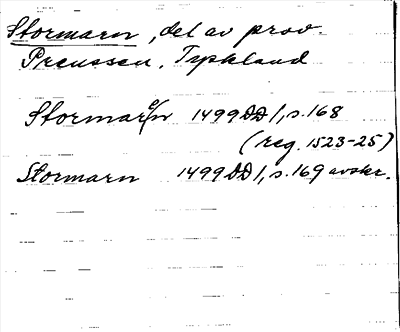 Stormarn, del av prov.
Preussen, Tyskland
Stormarn 1499 DD 1, s. 168
(reg. 1523-25)
Stormarn 1499 DD 1, s. 169 avskr.